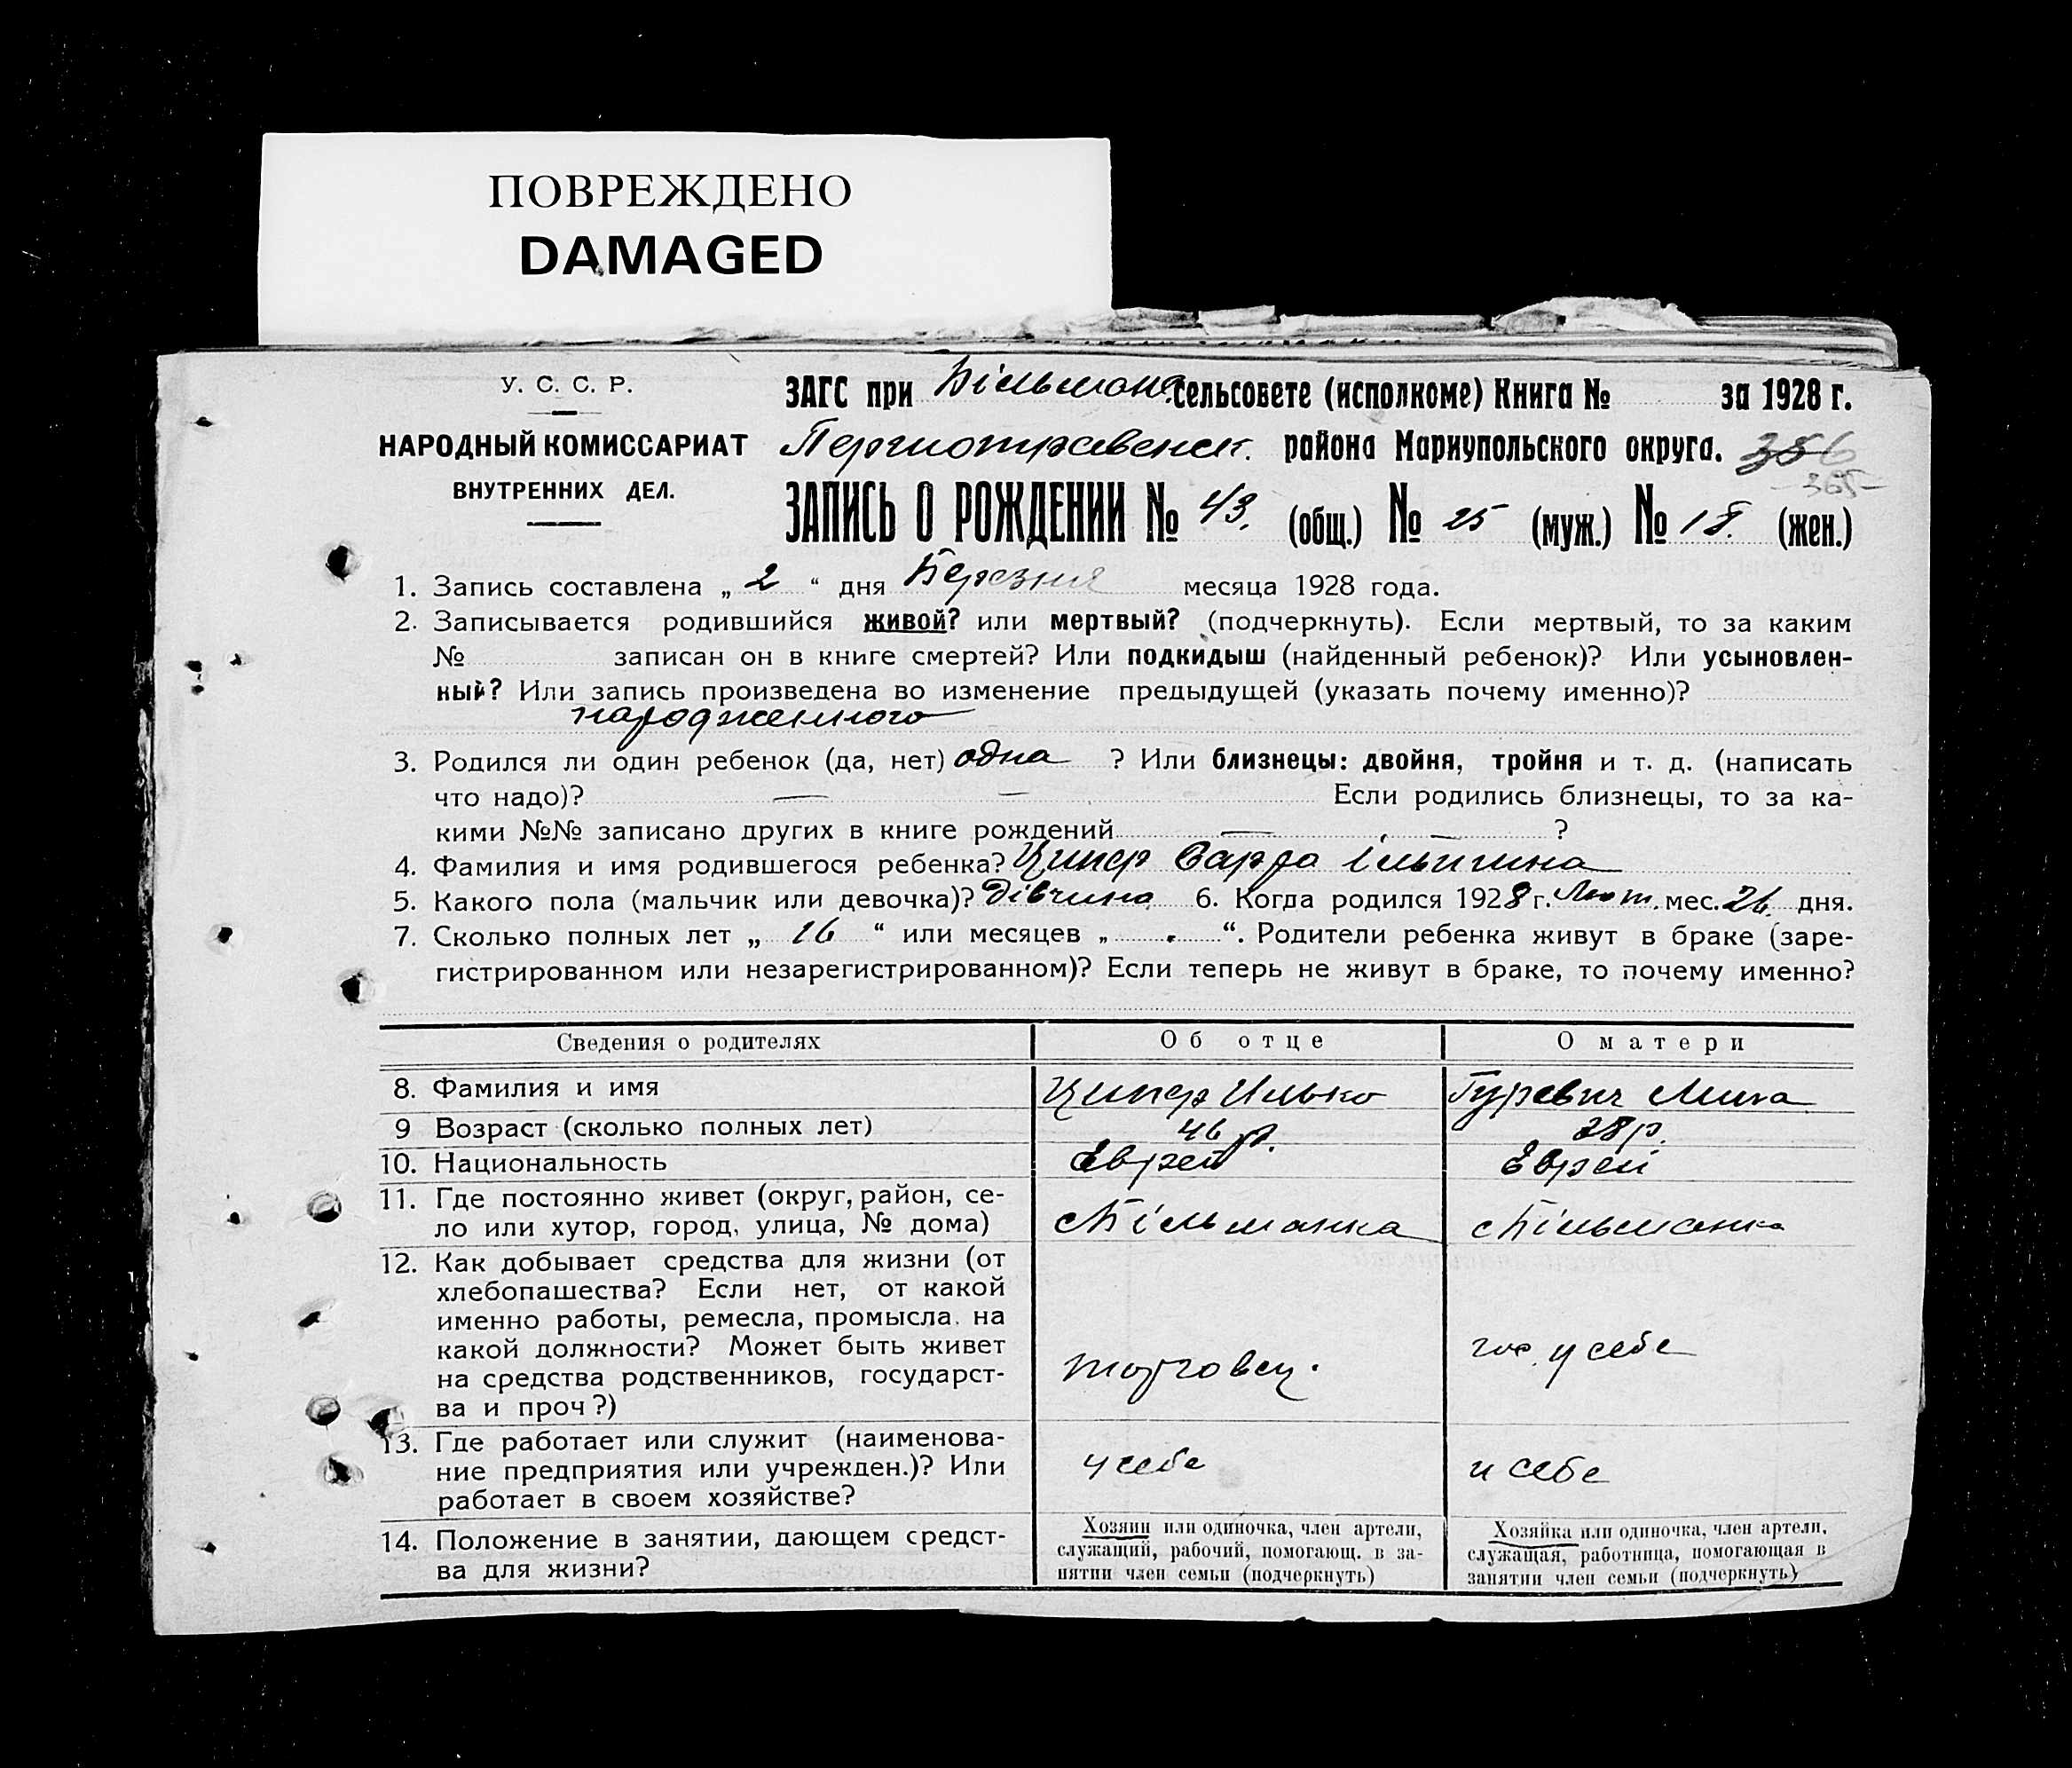 ПОВРЕЖДЕНО
DAMAGED
У. С. С. Р.
НАРОДНЫЙ КОМИССАРИАТ
ВНУТРЕННИХ ДЕЛ.
ЗАГС при Більманс. сельсовете (исполкоме) Книга № за 1928 г.
Першотравенск. района Мариупольского округа. 356
365
ЗАПИСЬ О РОЖДЕНИИ № 43. (общ.) № 25 (муж.) № 18. (жен.)
1. Запись составлена „ 2 “ дня Березня месяца 1928 года.
2. Записывается родившийся живой? или мертвый? (подчеркнуть). Если мертвый, то за каким
№ записан он в книге смертей? Или подкидыш (найденный ребенок)? Или усыновлен-
ный? Или запись произведена во изменение предыдущей (указать почему именно)?
народженного
3. Родился ли один ребенок (да, нет) одна ? Или близнецы: двойня, тройня и т. д. (написать
что надо)? — — Если родились близнецы, то за ка-
кими №№ записано других в книге рождений — — ?
4. Фамилия и имя родившегося ребенка? Ципер Сарра Ільична
5. Какого пола (мальчик или девочка)? Дівчина 6. Когда родился 1928 г. Лют. мес. 26 дня.
7. Сколько полных лет „ 16 “ или месяцев „ . “. Родители ребенка живут в браке (заре-
гистрированном или незарегистрированном)? Если теперь не живут в браке, то почему именно?
Сведения о родителях Об отце О матери
8. Фамилия и имя Ципер Илько Гуревич
9 Возраст (сколько полных лет) 46 р. 28 р.
10. Национальность Еврей Еврей
11. Где постоянно живет (округ, район, се-
ло или хутор, город, улица, № дома) с Більманка с Більманка
12. Как добывает средства для жизни (от
хлебопашества? Если нет, от какой
именно работы, ремесла, промысла. на
какой должности? Может быть живет
на средства родственников, государст-
ва и проч?) торговец. у себе
13. Где работает или служит (наименова-
ние предприятия или учрежден.)? Или
работает в своем хозяйстве? у себе у себе
14. Положение в занятии, дающем средст-
ва для жизни?
Хозяин или одиночка, член артели,
служащий, рабочий, помогающ. в за-
нятии член семьи (подчеркнуть)
Хозяйка или одиночка, член артели,
служащая, работница, помогающая в
занятии член семьи (подчеркнуть)